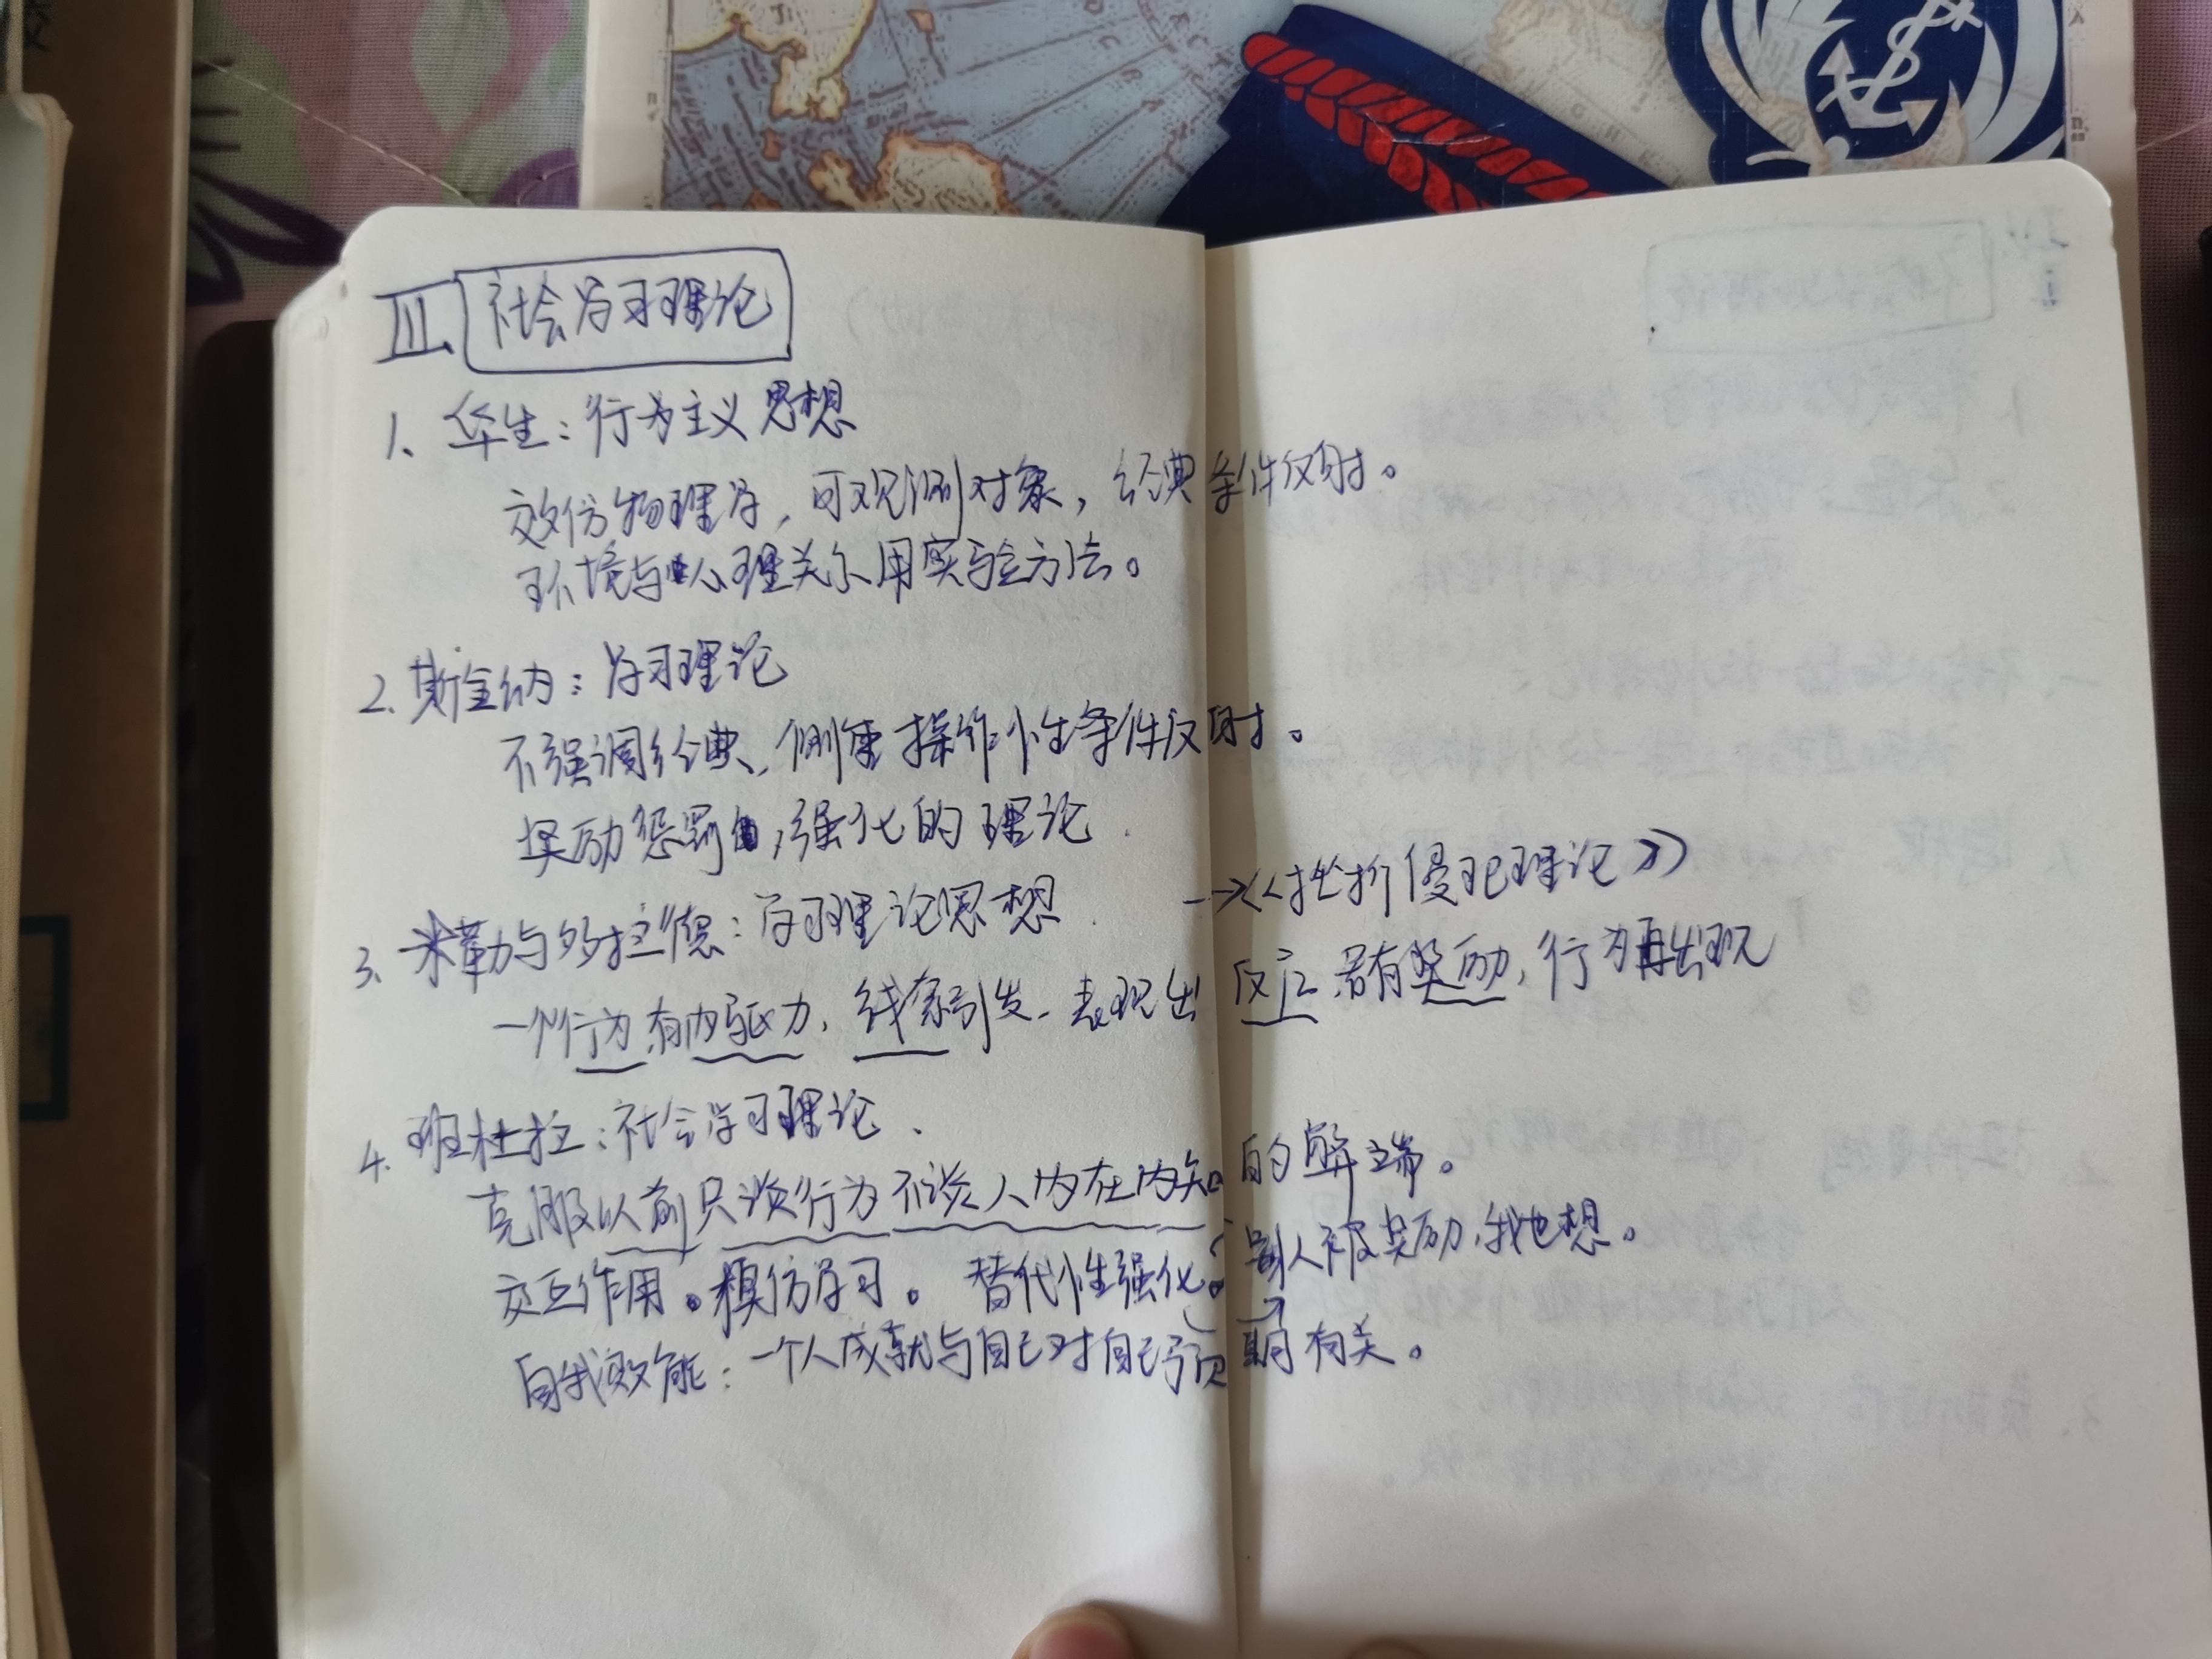 III、社会学习理论
1、华生：行为主义思想
效仿物理学，可观测对象，经典条件反射。
环境与心理关系用实验方法。
2、斯金纳：学习理论
不强调经典、侧重操作性条件反射。
奖励惩罚，强化的理论.
3、米勒与多拉德：学习理论思想. →《挫折侵犯理论》
一个行为有内驱力，线索引发，表现出反应，若有奖励，行为再出现
4、班杜拉：社会学习理论.
克服以前只谈行为不谈人内在内知的弊端。
交互作用。模仿学习。替代性强化：别人被奖励，我也想。
自我效能：一个人成就与自己对自己预期有关。